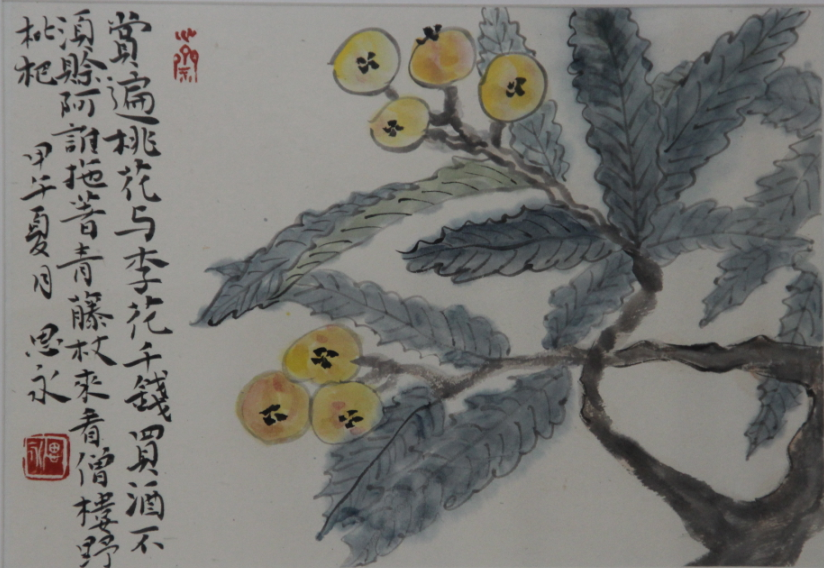 賞遍桃花与李花千錢買酒不
湏賖阿誰拖著青藤杖來看僧樓野
枇杷 甲午夏月 思永